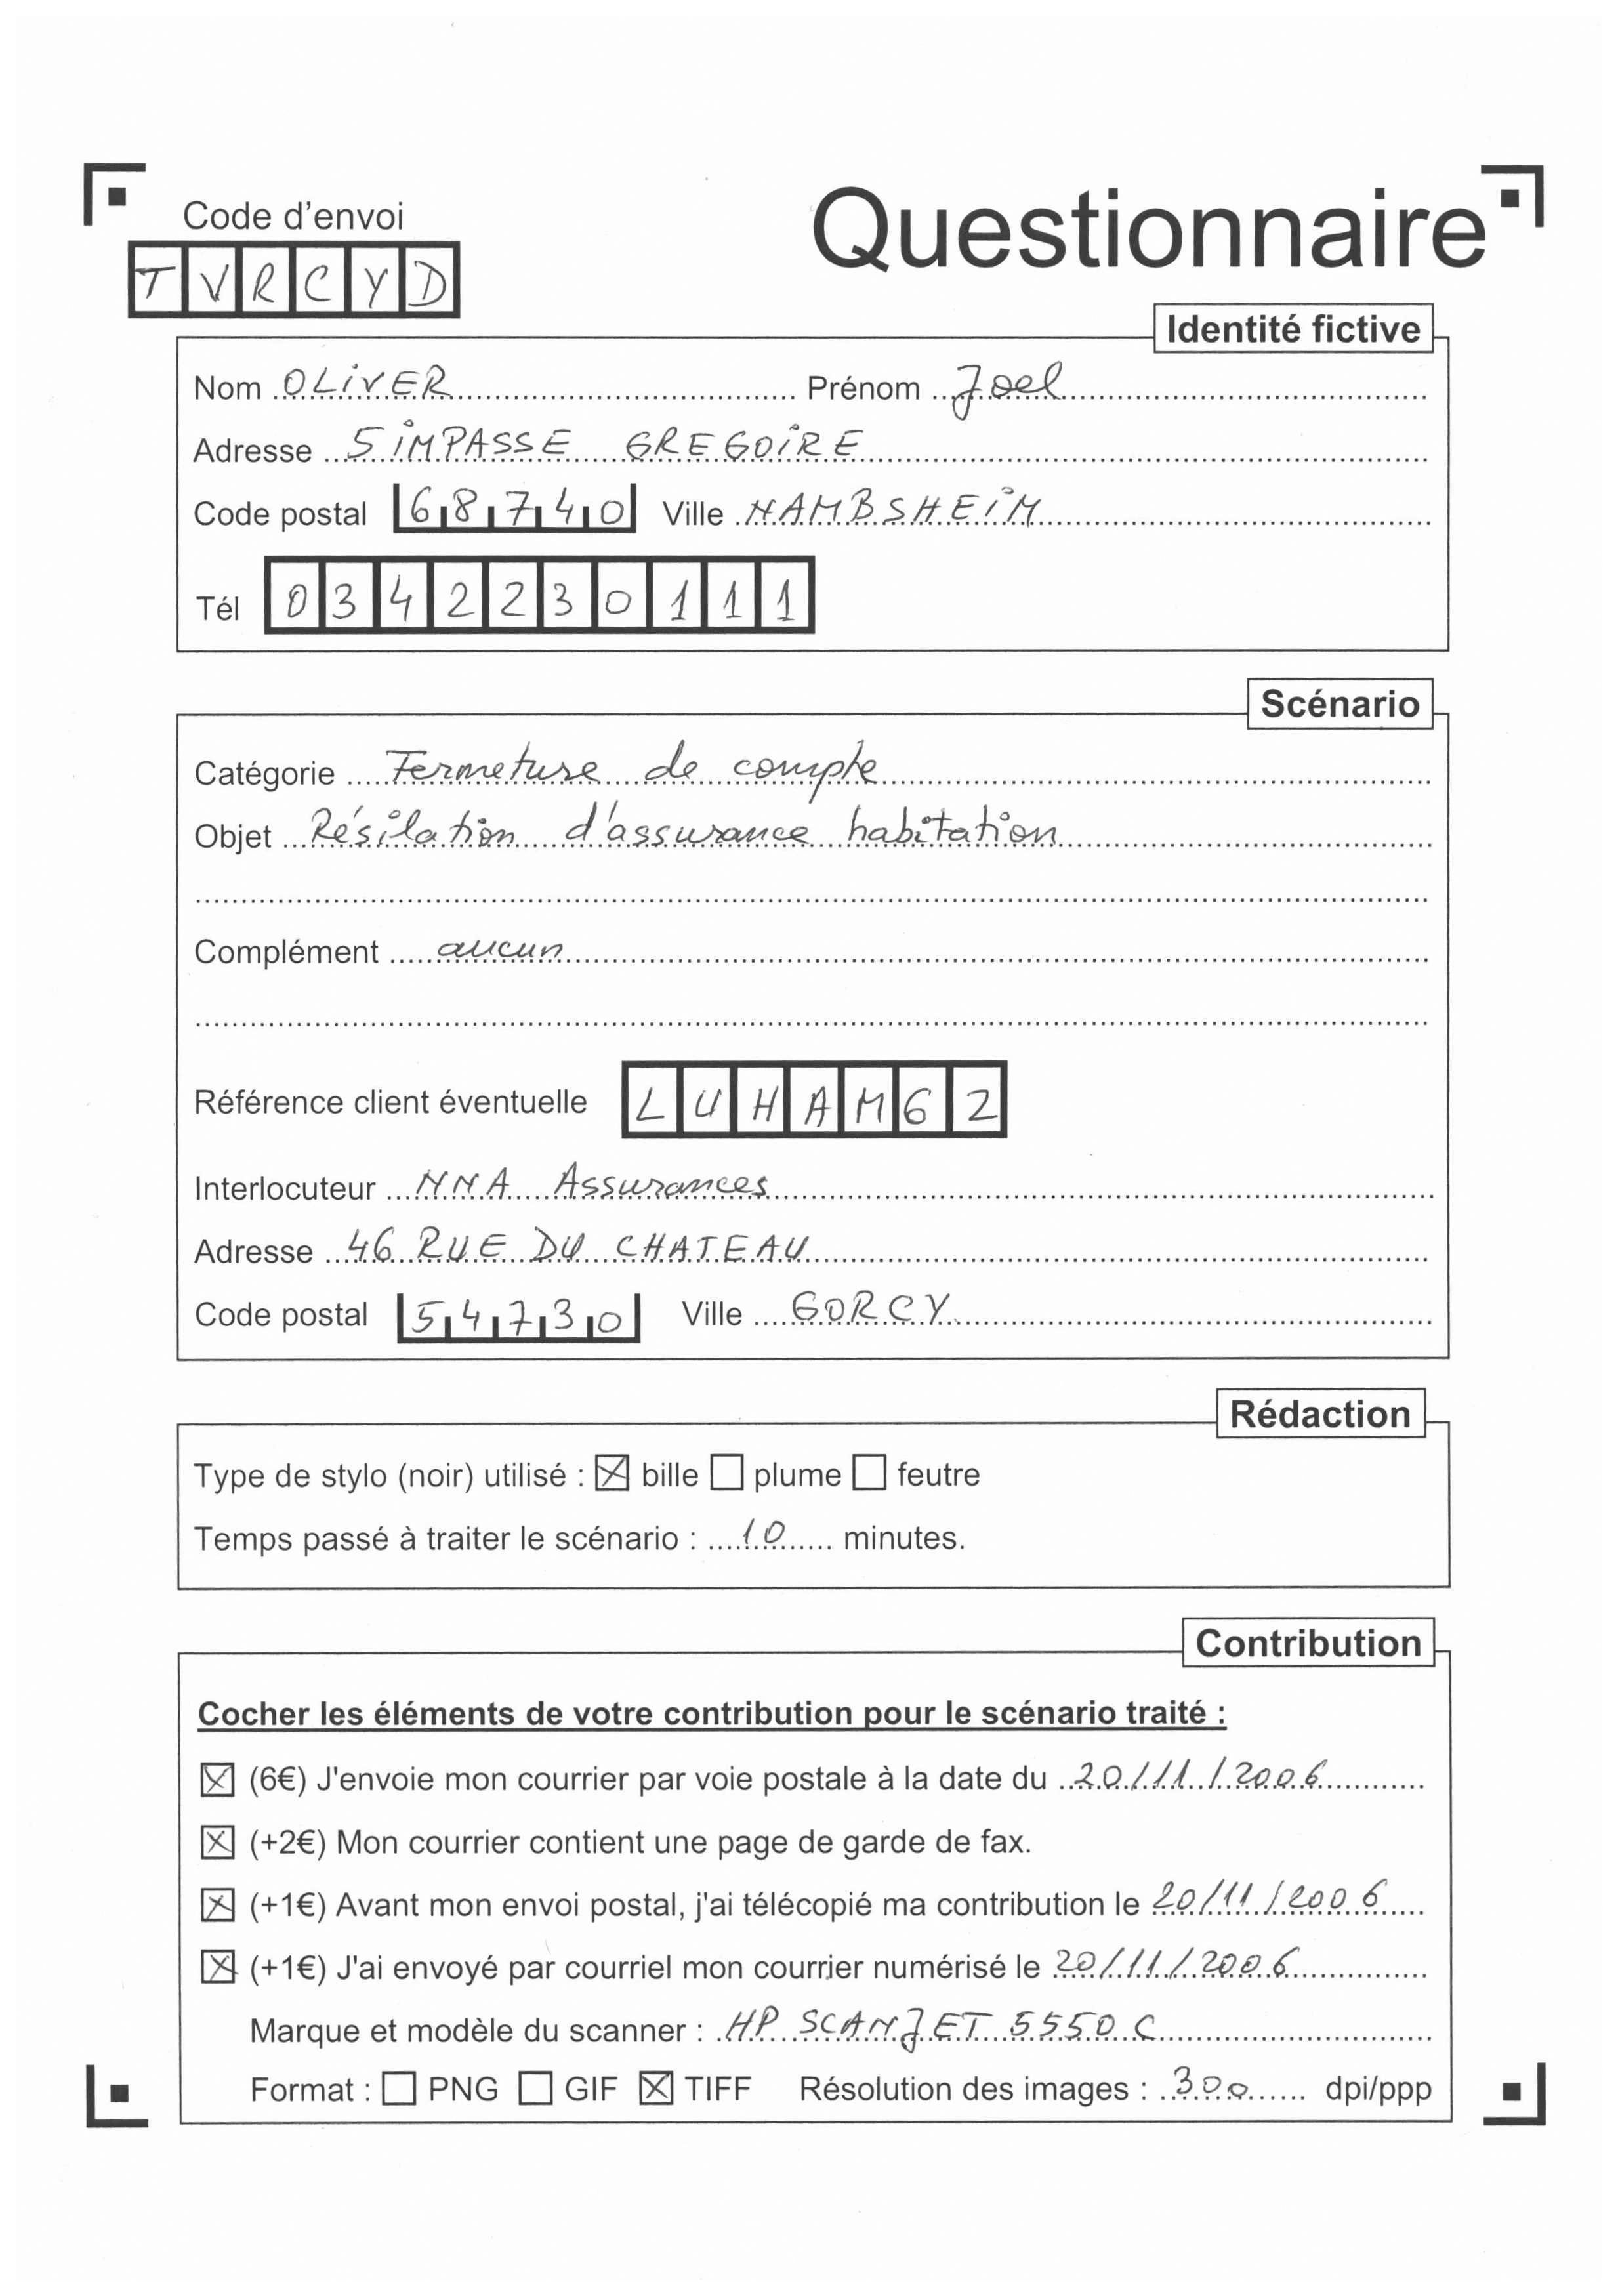 Code d'envoi
Questionnaire
TVRCYD
Identité fictive
Nom OLiVER Prénom Joel
Adresse 5 iMPASSE GREGOiRE
Code postal 68740 Ville NAMBSHEiM
Tél 0342230111
Scénario
Catégorie Fermeture de compte
Objet Résilation d'assurance habitation
Complément aucun
Référence client éventuelle LUHAM62
Interlocuteur NNA Assurances
Adresse 46 RUE DU CHATEAU
Code postal 54730 Ville GORCY
Rédaction
Type de stylo (noir) utilisé : ☒ bille ☐ plume ☐ feutre
Temps passé à traiter le scénario : 10 minutes.
Contribution
Cocher les éléments de votre contribution pour le scénario traité :
☒ (6€) J'envoie mon courrier par voie postale à la date du 20/11/2006
☒ (+2€) Mon courrier contient une page de garde de fax.
☒ (+1€) Avant mon envoi postal, j'ai télécopié ma contribution le 20/11/2006
☒ (+1€) J'ai envoyé par courriel mon courrier numérisé le 20/11/2006
Marque et modèle du scanner : HP SCANJET 5550 C
Format : ☐ PNG ☐ GIF ☒ TIFF Résolution des images : 300 dpi/ppp